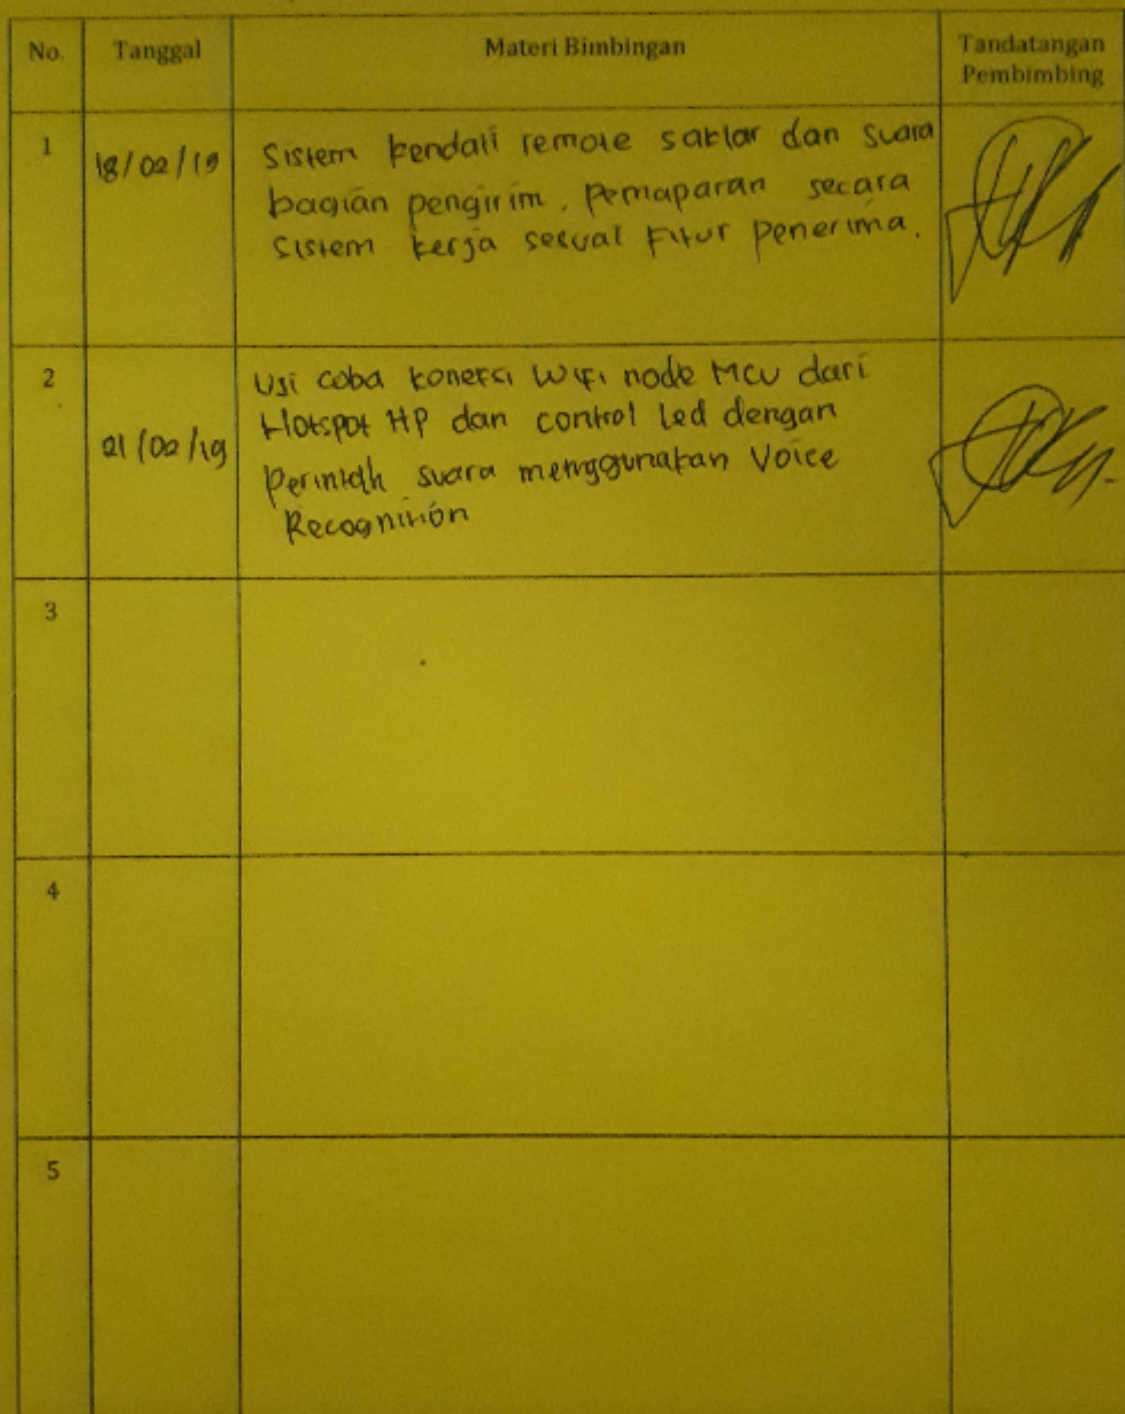 No. Tanggal Materi Bimbingan Tandatangan
Pembimbing
1 18/02/19 Sistem kendali remote saklar dan suara
bagian pengirim. Pemaparan secara
sistem kerja sesuai Fitur penerima.
2 21/02/19 Uji coba koneksi Wifi node MCU dari
Hotspot HP dan control Led dengan
Perintah suara menggunakan Voice
Recognition
3
4
5